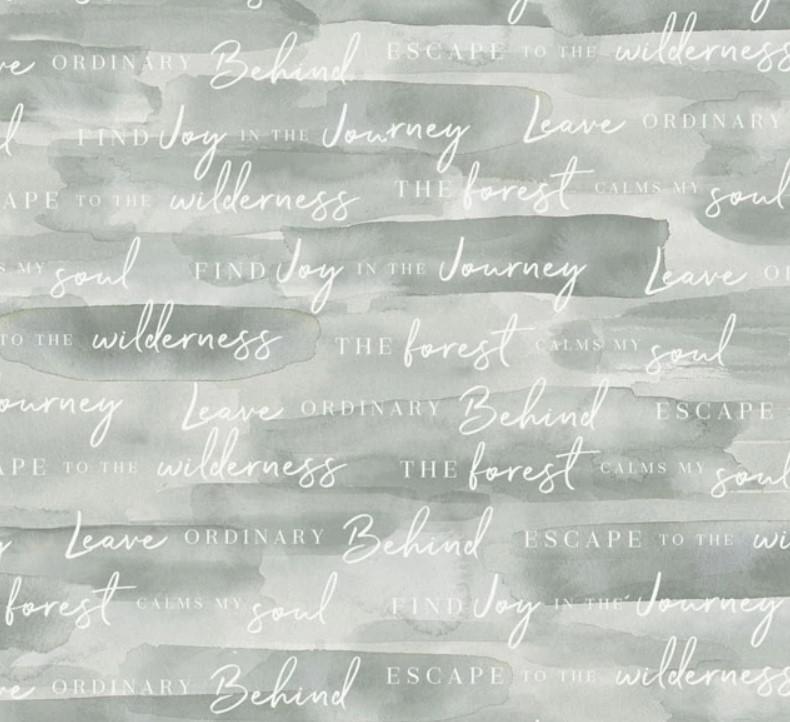 ve ORDINARY Behind ESCAPE TO THE wilderness
FIND Joy IN THE Journey Leave ORDINARY
APE TO THE wilderness THE forest CALMS MY soul
S MY soul FIND Joy IN THE Journey Leave OR
TO THE wilderness THE forest CALMS MY soul
ourney Leave ORDINARY Behind ESCAPE
APE TO THE wilderness THE forest CALMS MY soul
y Leave ORDINARY Behind ESCAPE TO THE wi
forest CALMS MY soul FIND Joy IN THE Journey
ve ORDINARY Behind ESCAPE TO THE wilderness